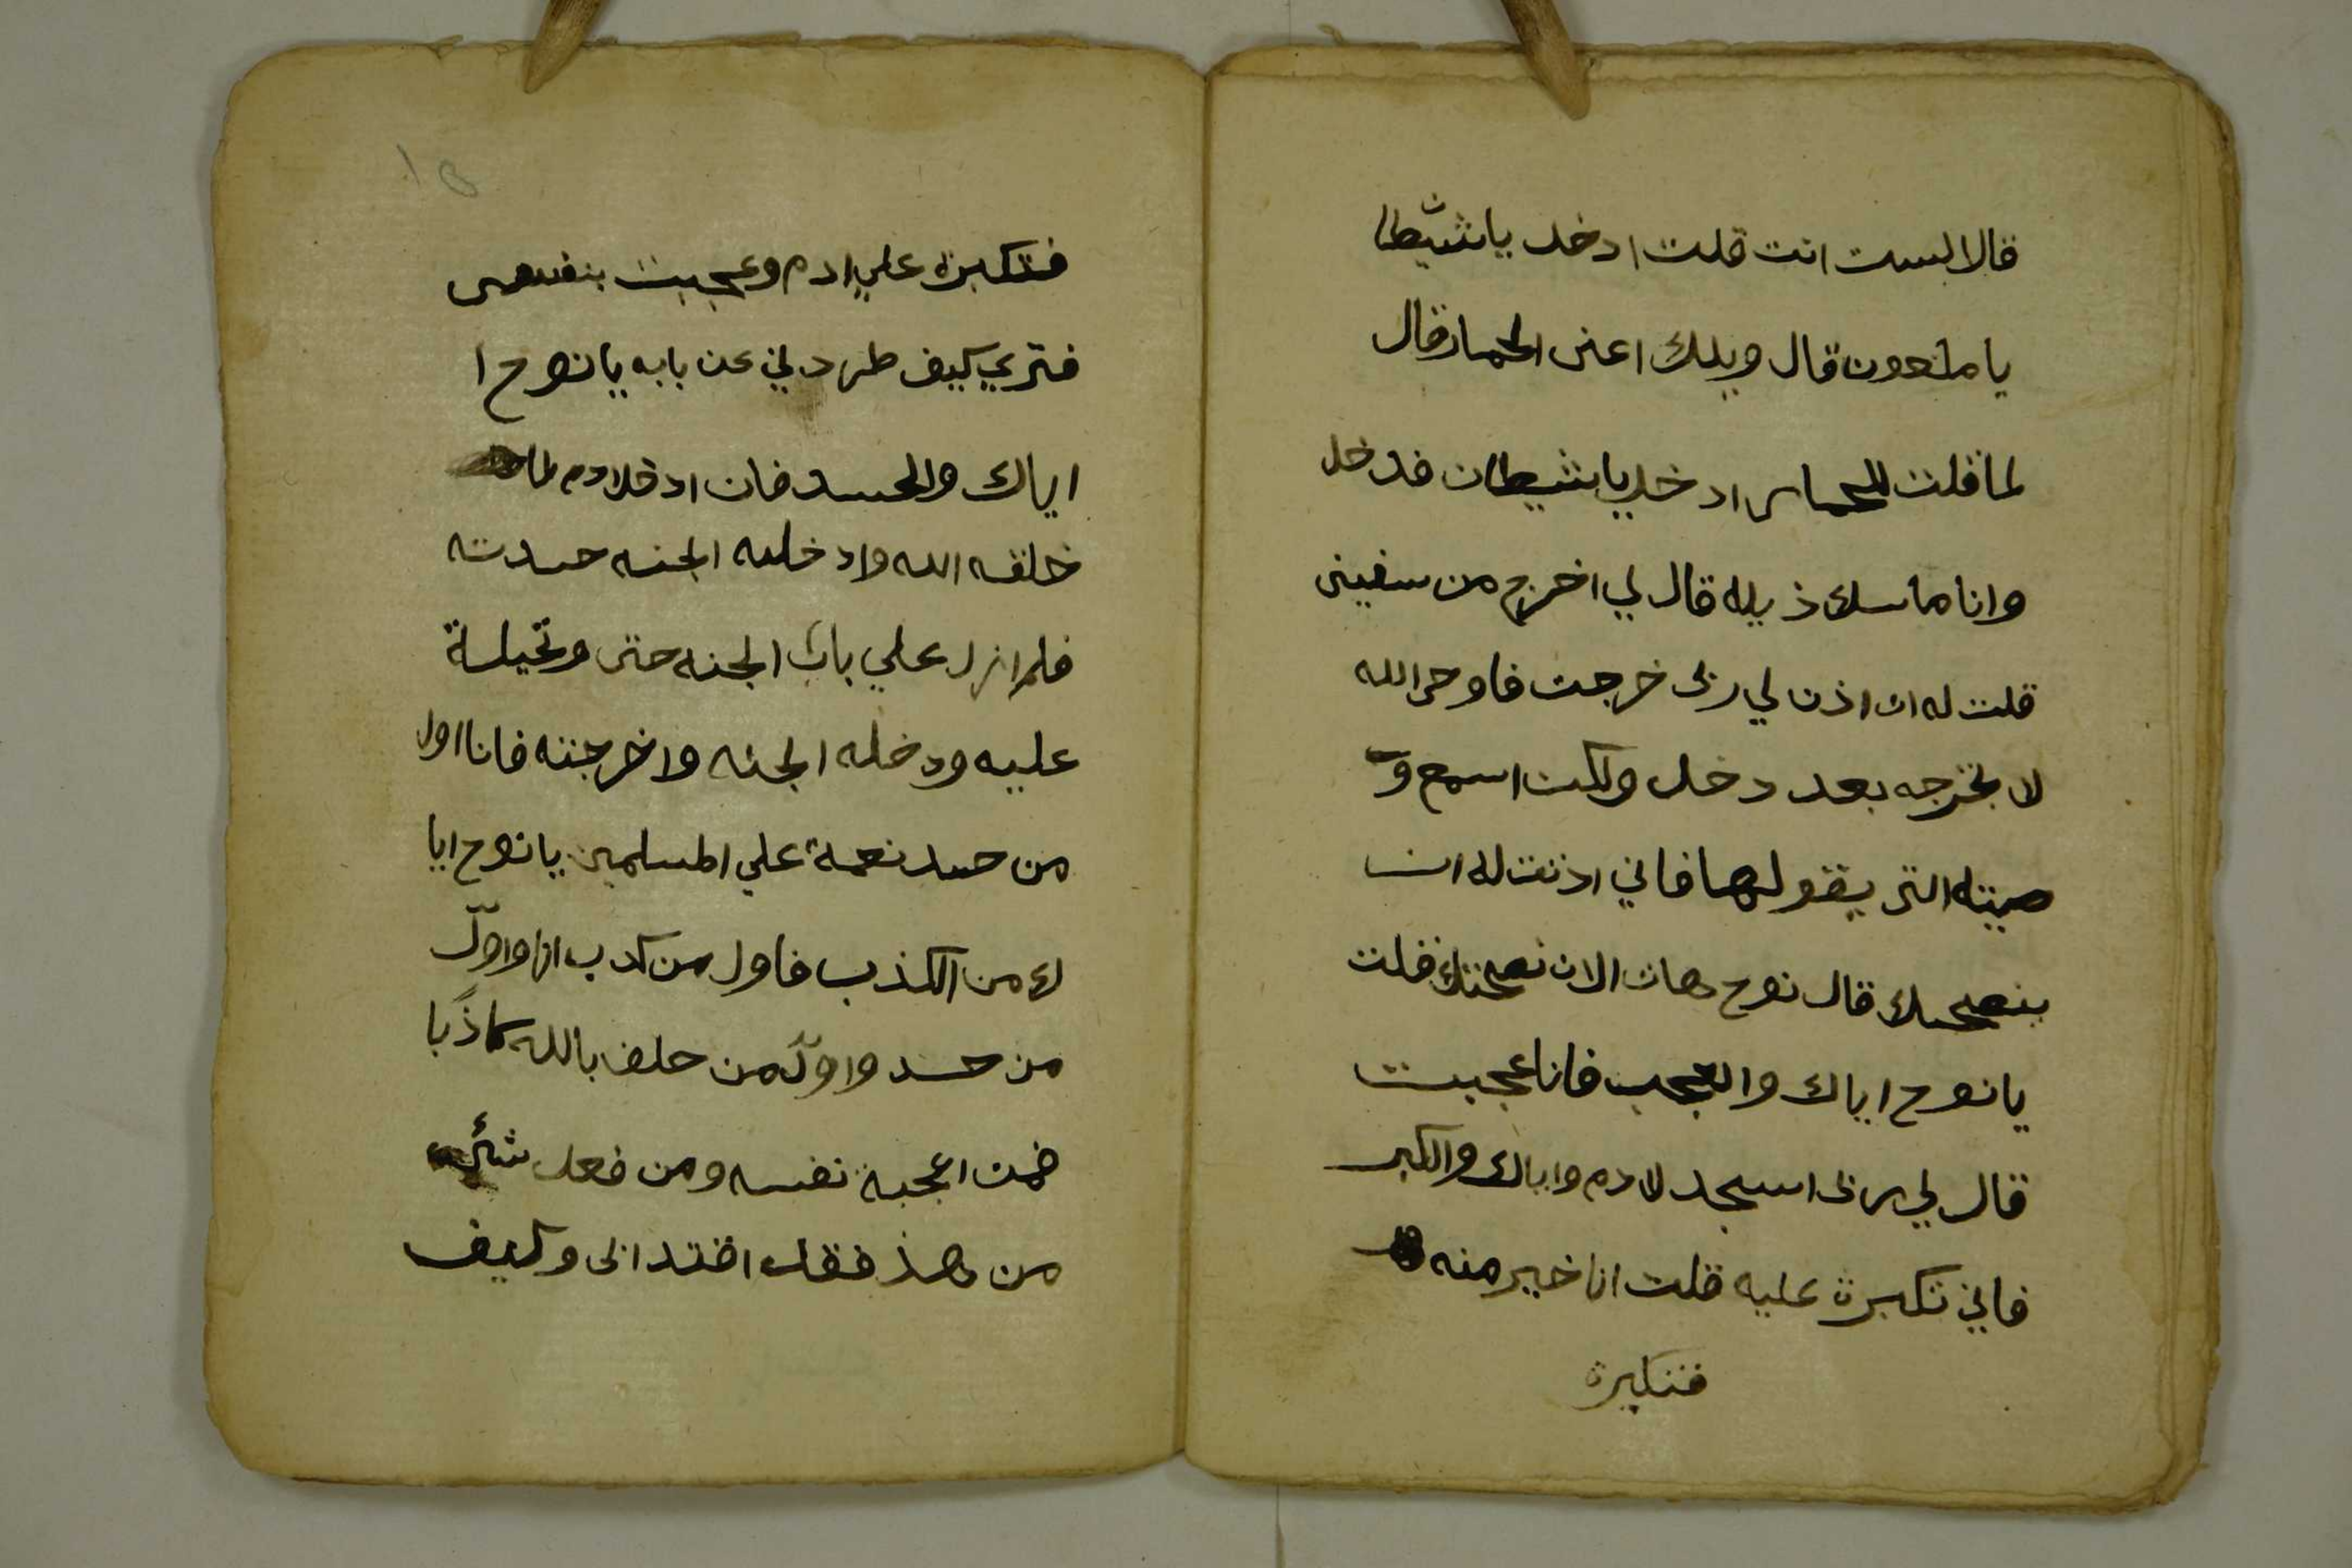 قال الست انت قلت ادخل يا شيطان
يا ملعون قال ويلك اعنى الحمار قال
لما قلت للحمار ادخل يا شيطان فدخل
وانا ماسك ذيله قال لي اخرج من سفينى
قلت له ان اذن لي ربى خرجت فاوحى الله
لا تخرجه بعد دخل ولكن اسمع و
صيته التى يقولها فاني اذنت له ان
ينصحك قال نوح هات الان نصحتك قلت
يا نوح اياك والعجب فانا عجبت
قال لي ربى اسجد لادم واياك والكبر
فاني تكبرة عليه قلت انا خير منه
فتكبرة
١٥
فتكبرة على ادم وعجبت بنفسى
فترى كيف طردني عن بابه يا نوح ا
اياك والحسد فان ادم لما
خلقه الله وادخله الجنه حسدته
فلم ازل على باب الجنه حتى وتحيلة
عليه ودخله الجنه واخرجته فانا اول
من حسد نعمة علي المسلمين يا نوح ايا
ك من الكذب فاول من كدب انا واوّل
من حسد واوّل من حلف بالله كاذبًا
فمن اعجبة نفسه ومن فعل شئ
من هذ فقد اقتدا بى وكيف